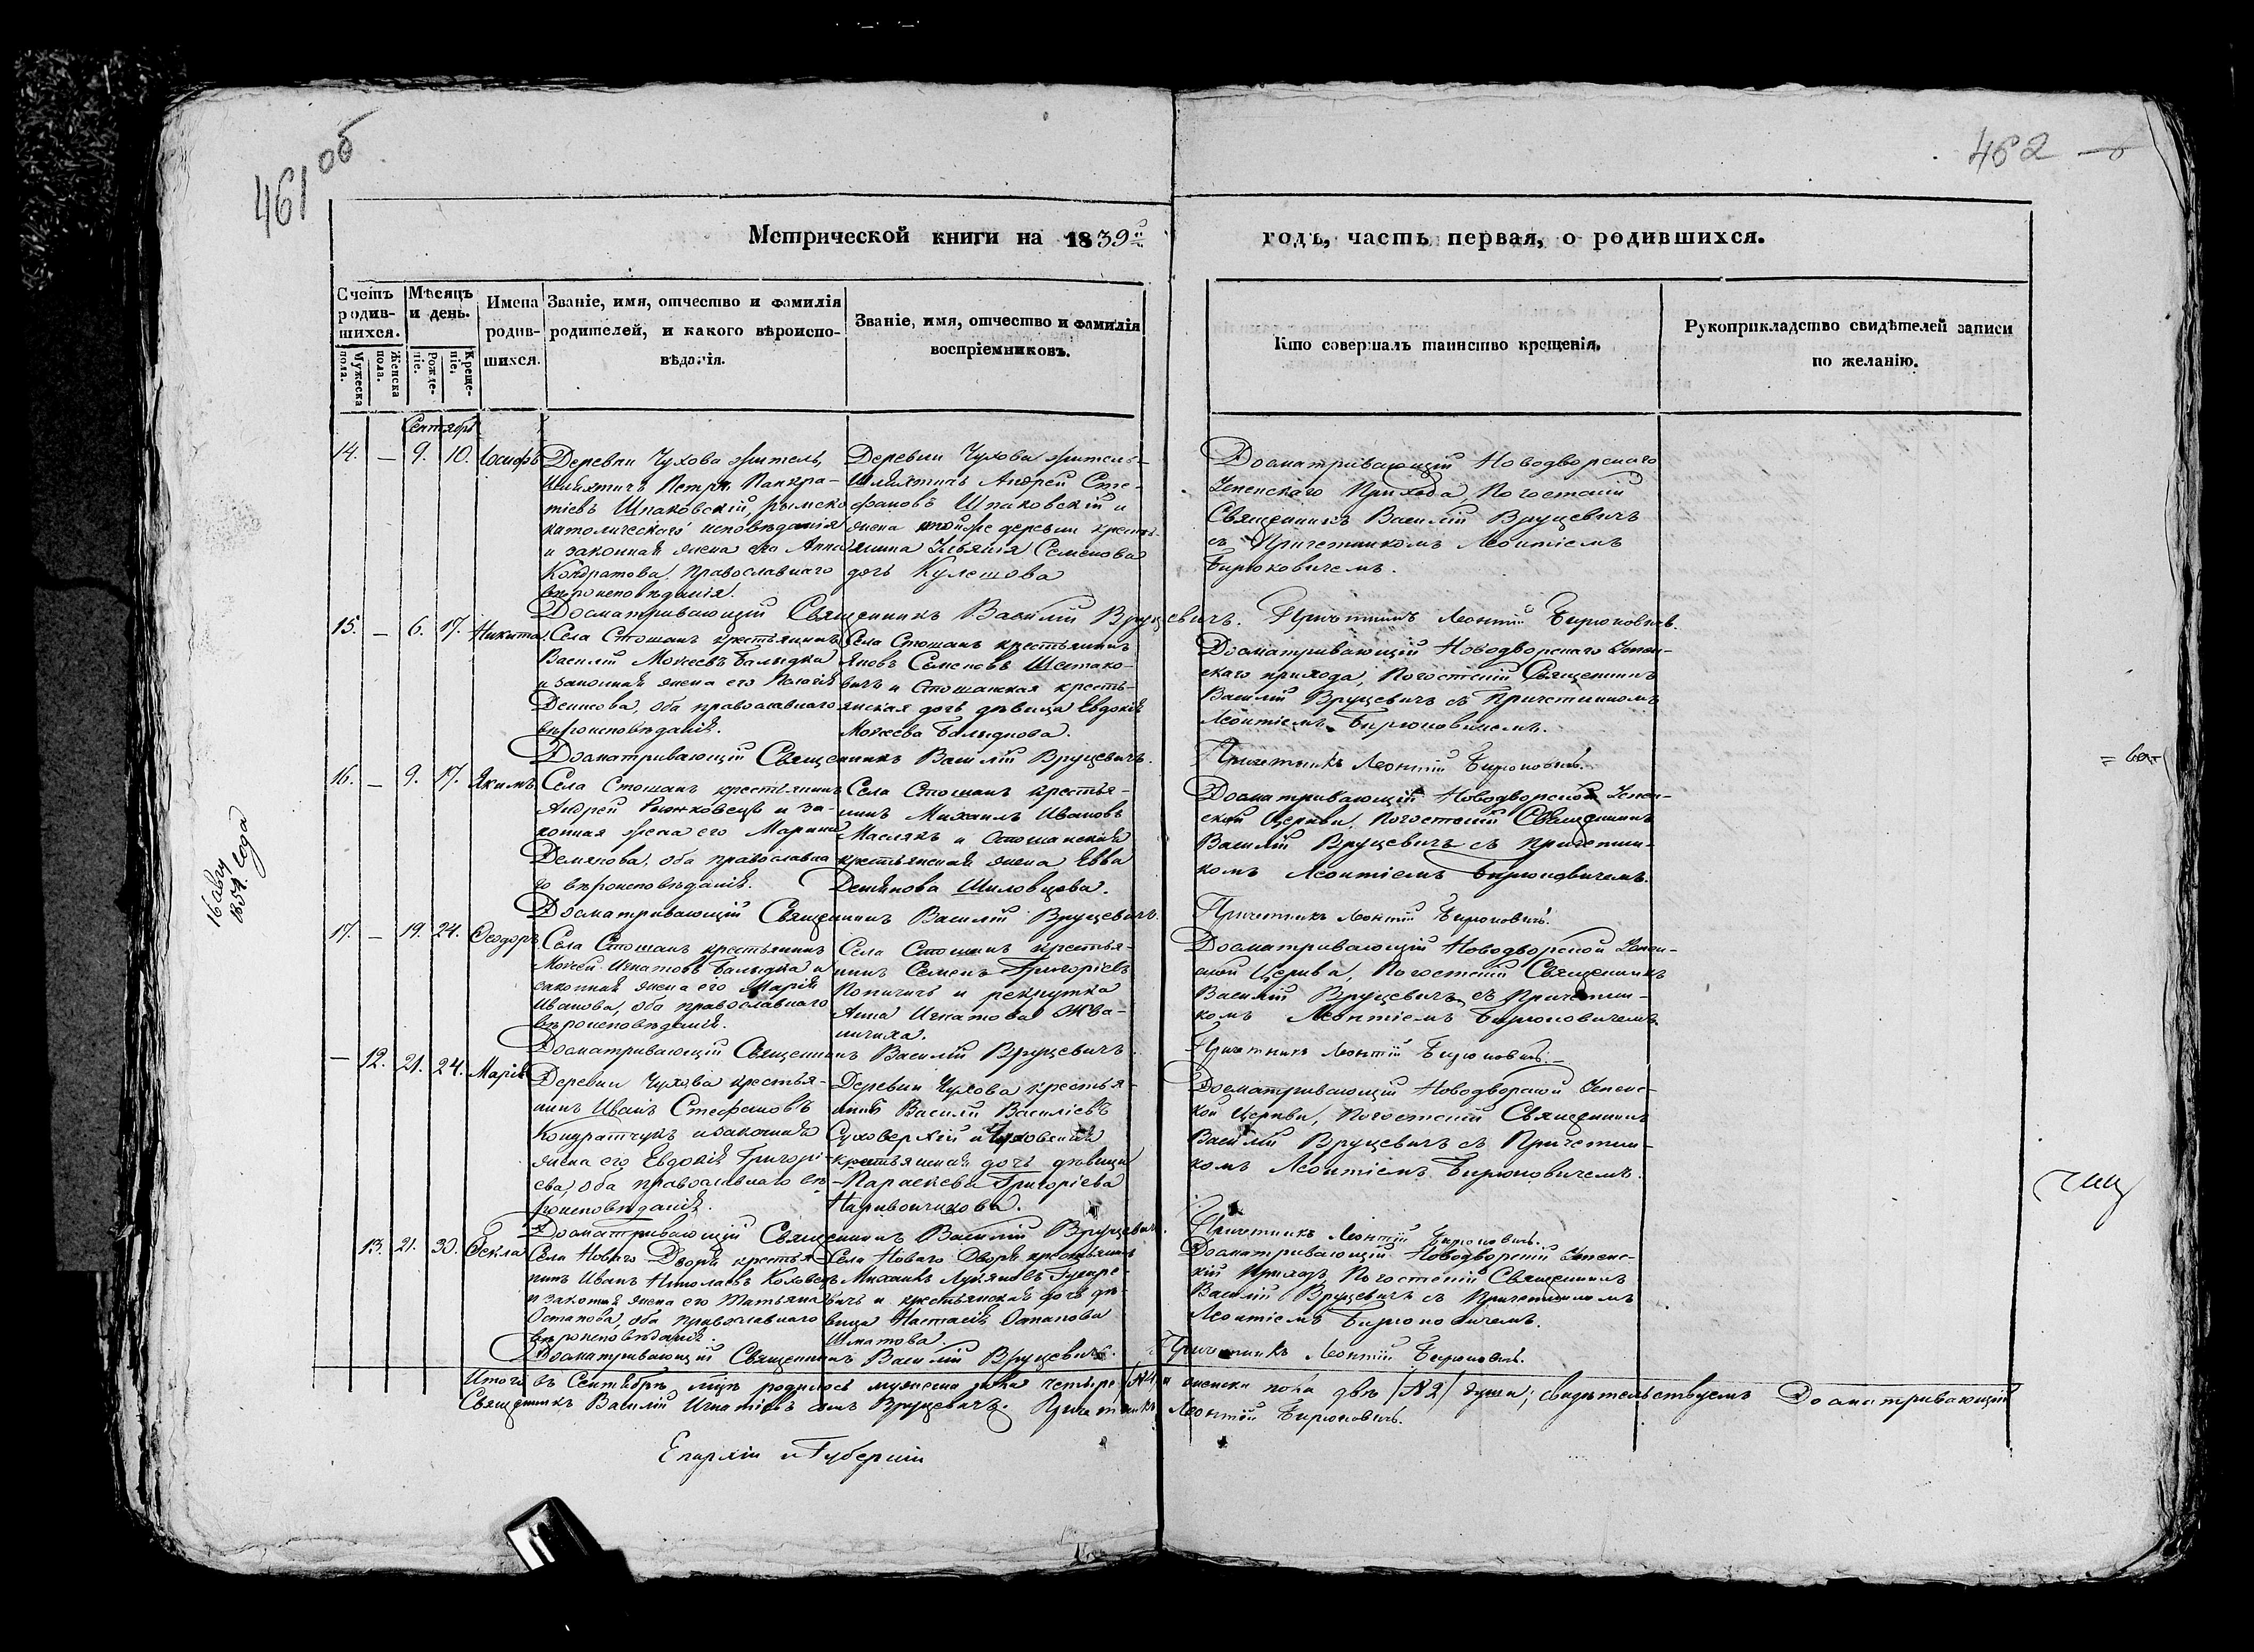 461 об
462
Метрической книги на 1839й годъ, часть первая, о родившихся.
Счетъ родив-шихся.
Мужеска пола.
Женска пола.
Мѣсяцъ и день.
Рожде-ніе.
Креще-ніе.
Имена родив-шихся.
Званіе, имя, отчество и фамилія родителей, и какого вѣроиспо-вѣданія.
Званіе, имя, отчество и фамилія воспріемниковъ.
Кто совершалъ таинство крещенія.
Рукоприкладство свидѣтелей записи по желанію.
Сентябрь
14. — 9. 10. Іосифъ
Деревни Чухова житель,
Шляхтичъ Петръ Панкра-
тіевъ Шпаковскій, римско
католическаго исповѣданія
и законная жена его Анна
Кондратова, православнаго
вѣроисповѣданія.
Деревни Чухова житель
Шляхтичъ Андрей Сте-
фановъ Шпаковскій и
жена тойже деревни кресть-
янина Ульянія Семенова
дочь Кулешова
Досматривающій Новодворскаго
Успенскаго Прихода, Погостскій
Священникъ Василій Вруцевичъ
съ Причетникомъ Леонтіемъ
Бирюковичемъ.
Досматривающій Священникъ Василій Вруцевичъ. Причетникъ Леонтій Бирюковичъ.
15. — 6. 17. Никита
Села Стошанъ крестьянинъ
Василій Моѵсеевъ Балыдка
и законная жена его Пелагія
Денисова, оба православнаго
вѣроисповѣданія.
Села Стошанъ крестьянинъ
Яковъ Семеновъ Шетако-
вичъ и Стошанская кресть-
янская дочь дѣвица Евдокія
Моѵсеева Балыдкова.
Досматривающій Новодворскаго Успен-
скаго прихода, Погостскій Священникъ
Василій Вруцевичъ съ Причетникомъ
Леонтіемъ Бирюковичемъ.
Досматривающій Священникъ Василій Вруцевичъ.
Причетникъ Леонтій Бирюковичъ.
16. — 9. 17. Якимъ
Села Стошанъ крестьянинъ
Андрей Рынковецъ и за-
конная жена его Марина
Демянова, оба православна
го вѣроисповѣданія.
Села Стошанъ крестья-
нинъ Михаилъ Ивановъ
Маслякъ и Стошанская
крестьянская жена Евва
Демянова Шиловцова.
Досматривающій Новодворской Успен-
ской Церкви, Погостскій Священникъ
Василій Вруцевичъ съ Причетни-
комъ Леонтіемъ Бирюковичемъ.
Досматривающій Священникъ Василій Вруцевичъ.
Причетникъ Леонтій Бирюковичъ.
17. — 19. 24. Ѳеодоръ
Села Стошанъ крестьянинъ
Моѵсей Игнатовъ Балыдка и
законная жена его Марія
Иванова, оба православнаго
вѣроисповѣданія.
Села Стошанъ крестья-
нинъ Семенъ Григоріевъ
Копичичъ и рекрутка
Анна Игнатова
Досматривающій Новодворской Успен-
ской Церкви, Погостскій Священникъ
Василій Вруцевичъ съ Причетни-
комъ Леонтіемъ Бирюковичемъ.
Досматривающій Священникъ Василій Вруцевичъ.
Причетникъ Леонтій Бирюковичъ.
— 12. 21. 24. Марія
Деревни Чухова крестья-
нинъ Иванъ Стефановъ
Кондратчукъ и законная
жена его Евдокія Григорі-
ева, оба православнаго вѣ
роисповѣданія.
Деревни Чухова крестья-
нинъ Василій Василіевъ
Суховерхій и Чуховская
крестьянская дочь дѣвица
Параскева Григоріева
Наривончикова.
Досматривающій Новодворской Успенс-
кой Церкви, Погостскій Священникъ
Василій Вруцевичъ съ Причетни-
комъ Леонтіемъ Бирюковичемъ.
Досматривающій Священникъ Василій Вруцевичъ.
Причетникъ Леонтій Бирюковичъ.
13. 21. 30. Ѳекла
Села Новаго Двора крестья-
нинъ Иванъ Николаевъ Коховецъ
и законная жена его Татьяна
Остапова, оба православнаго
вѣроисповѣданія.
Села Новаго Двора крестьянинъ
Михаилъ Лукяновъ
вичъ и крестьянская дочь дѣ-
вица Настасія Остапова
Шматова.
Досматривающій Новодворскій Успенс-
кій Приходъ, Погостскій Священникъ
Василій Вруцевичъ съ Причетникомъ
Леонтіемъ Бирюковичемъ.
Досматривающій Священникъ Василій Вруцевичъ. Причетникъ Леонтій Бирюковичъ.
Итого въ Сентябрѣ мѣцѣ родилось мужеска пола четыре /№4/ и женска пола двѣ /№2/ души; свидѣтельствуемъ Досматривающій
Священникъ Василій Игнатіевъ сынъ Вруцевичъ. Причетникъ Леонтій Бирюковичъ.
Епархіи и Губерніи